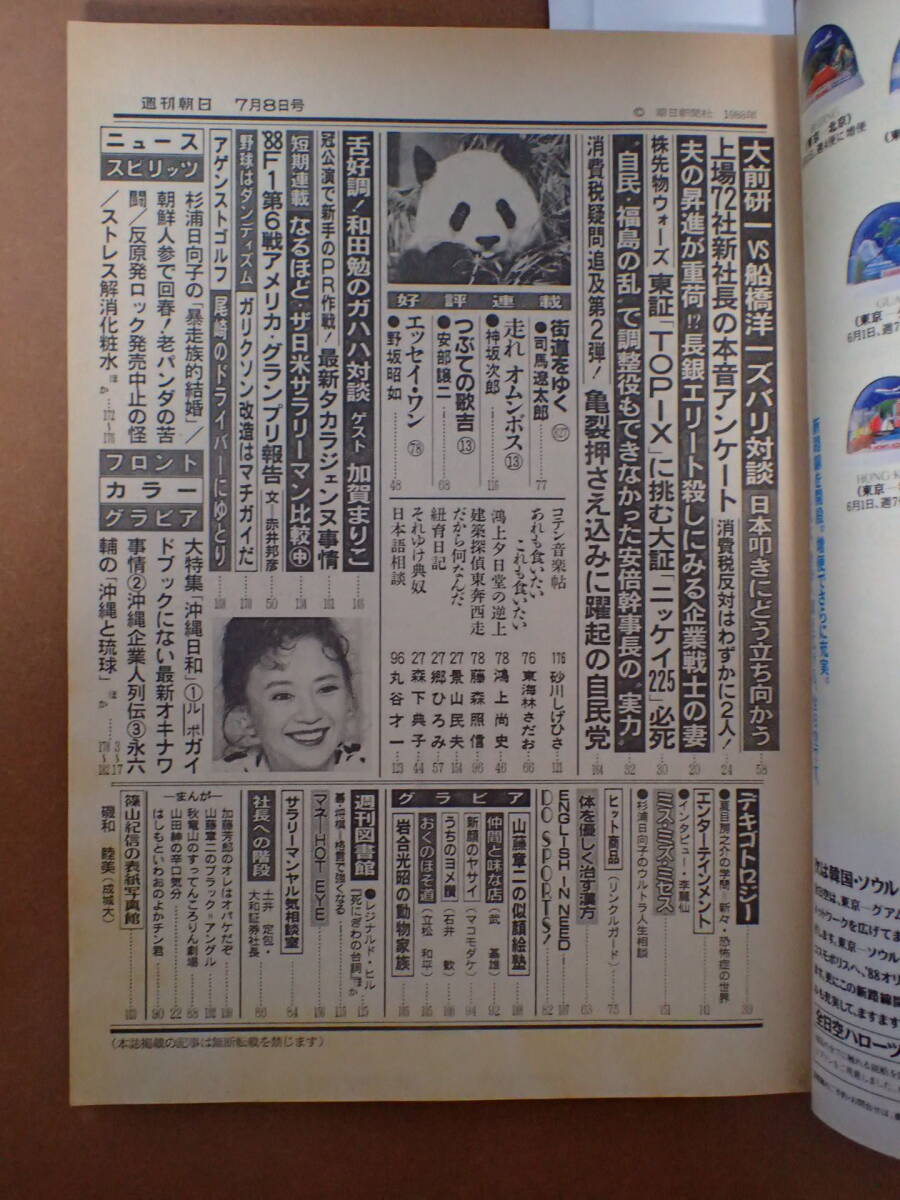 週刊朝日 7月8日号
© 朝日新聞社 1988年
大前研一 VS 船橋洋一 ズバリ対談 日本叩きにどう立ち向かう 58
上場72社新社長の本音アンケート 消費税反対はわずかに2人! 24
夫の昇進が重荷!? 長銀エリート殺しにみる企業戦士の妻 20
株先物ウォーズ 東証「TOPIX」に挑む大証「ニッケイ225」必死 30
“自民・福島の乱”で調整役もできなかった安倍幹事長の“実力” 32
消費税疑問追及第2弾! 亀裂押さえ込みに躍起の自民党 164
好評連載
街道をゆく
●司馬遼太郎 77
走れ オムンボス⑬
●神坂次郎 116
つぶての歌吉⑬
●安部譲二 68
エッセイ・ワン 78
●野坂昭如 48
コテン音楽帖 176 砂川しげひさ 121
あれも食いたいこれも食いたい 76 東海林さだお 66
鴻上夕日堂の逆上 78 鴻上尚史 46
建築探偵東奔西走 78 藤森照信 96
だから何なんだ 27 景山民夫 134
紐育日記 27 郷ひろみ 57
それゆけ典奴 27 森下典子 44
日本語相談 96 丸谷才一 123
舌好調! 和田勉のガハハ対談 ゲスト 加賀まりこ 146
冠公演で新手のPR作戦! 最新タカラジェンヌ事情 161
短期連載 なるほど・ザ日米サラリーマン比較㊥ 134
'88F1第6戦アメリカ・グランプリ報告 文―赤井邦彦 50
野球はダンディズム ガリクソン改造はマチガイだ 170
アゲンストゴルフ 尾崎のドライバーにゆとり 168
ニュース
スピリッツ
杉浦日向子の「暴走族的結婚」/
朝鮮人参で回春!老パンダの苦
闘/反原発ロック発売中止の怪
/ストレス解消化粧水 ほか 172~176
フロント
カラー
グラビア
大特集「沖縄日和」①ルポガイ
ドブックにない最新オキナワ
事情②沖縄企業人列伝③永六
輔の「沖縄と琉球」 ほか 3~17
デキゴトロジー 39
●夏目房之介の学問・新々・恐怖症の世界
エンターティンメント 141
●インタビュー・李麗仙
ミズ・ミス・ミセス 151
●杉浦日向子のウルトラ人生相談
ヒット商品 (リンクルガード) 75
体を優しく治す漢方 63
ENGLISH IN NEED 107
DO SPORTS! 82
グラビア
山藤章二の似顔絵塾 108
仲間と味な店 (武 基雄) 92
新顔のヤサイ (マコモダケ) 94
うちのヨメ讃 (石井 歓) 106
おくのほそ道 (立松 和平) 105
岩合光昭の動物家族 105
週刊図書館 125
●レジナルド・ヒル『死にぎわの台詞』ほか
碁・将棋・格言で強くなる 113
マネーHOT EYE 156
サラリーマンヤル気相談室 84
社長への階段 86
土井 定包・大和証券社長
―まんが―
加藤芳郎のオレはオバケだぞ 100
山藤章二のブラック=アングル 182
秋竜山のすってんころりん劇場 88
山田紳の辛口気分 22
はしもといわおのよかチン君 90
篠山紀信の表紙写真館 103
磯和 睦美(成城大)
(本誌掲載の記事は無断転載を禁じます)
6月1日、週7
(東京―
新路線を開設。増便でさらに充実。
全日空ハローツ